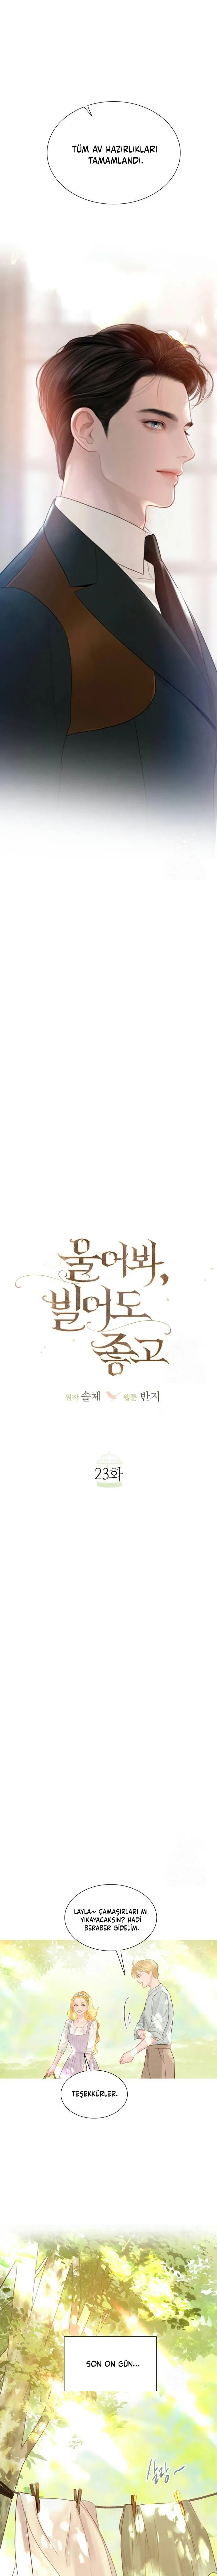 TÜM AV HAZIRLIKLARI
TAMAMLANDI.
울어봐,
빌어도
좋고
원작 솔체 웹툰 반지
23화
LAYLA~ ÇAMAŞIRLARI MI
YIKAYACAKSIN? HADİ
BERABER GİDELİM.
TEŞEKKÜRLER.
SON ON GÜN...
살랑~